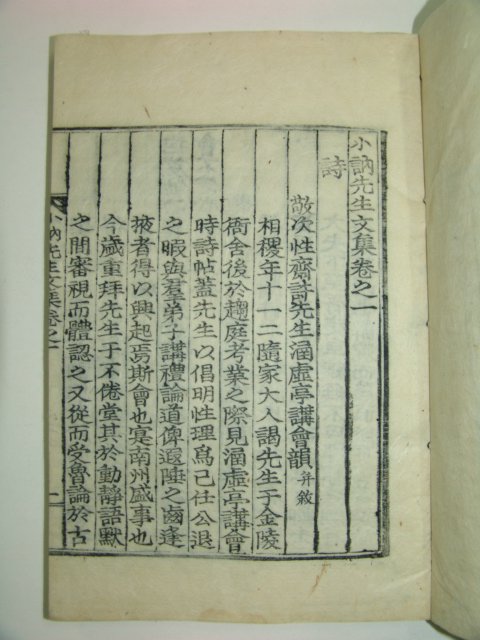 小訥先生文集卷之一
詩
敬次性齋許先生涵虛亭講會韻 并敘
相稷年十一二隨家大人謁先生于金陵
衙舍後於趨庭考業之際見涵虛亭講會
時詩帖蓋先生以倡明性理爲己任公退
之暇與羣弟子講禮論道俾遐陲之齒逢
掖者得以興起焉斯會也寔南州盛事也
今歲重拜先生于不倦堂其於動靜語默
之間審視而體認之又從而受魯論於古
小訥先生文集卷之一
一